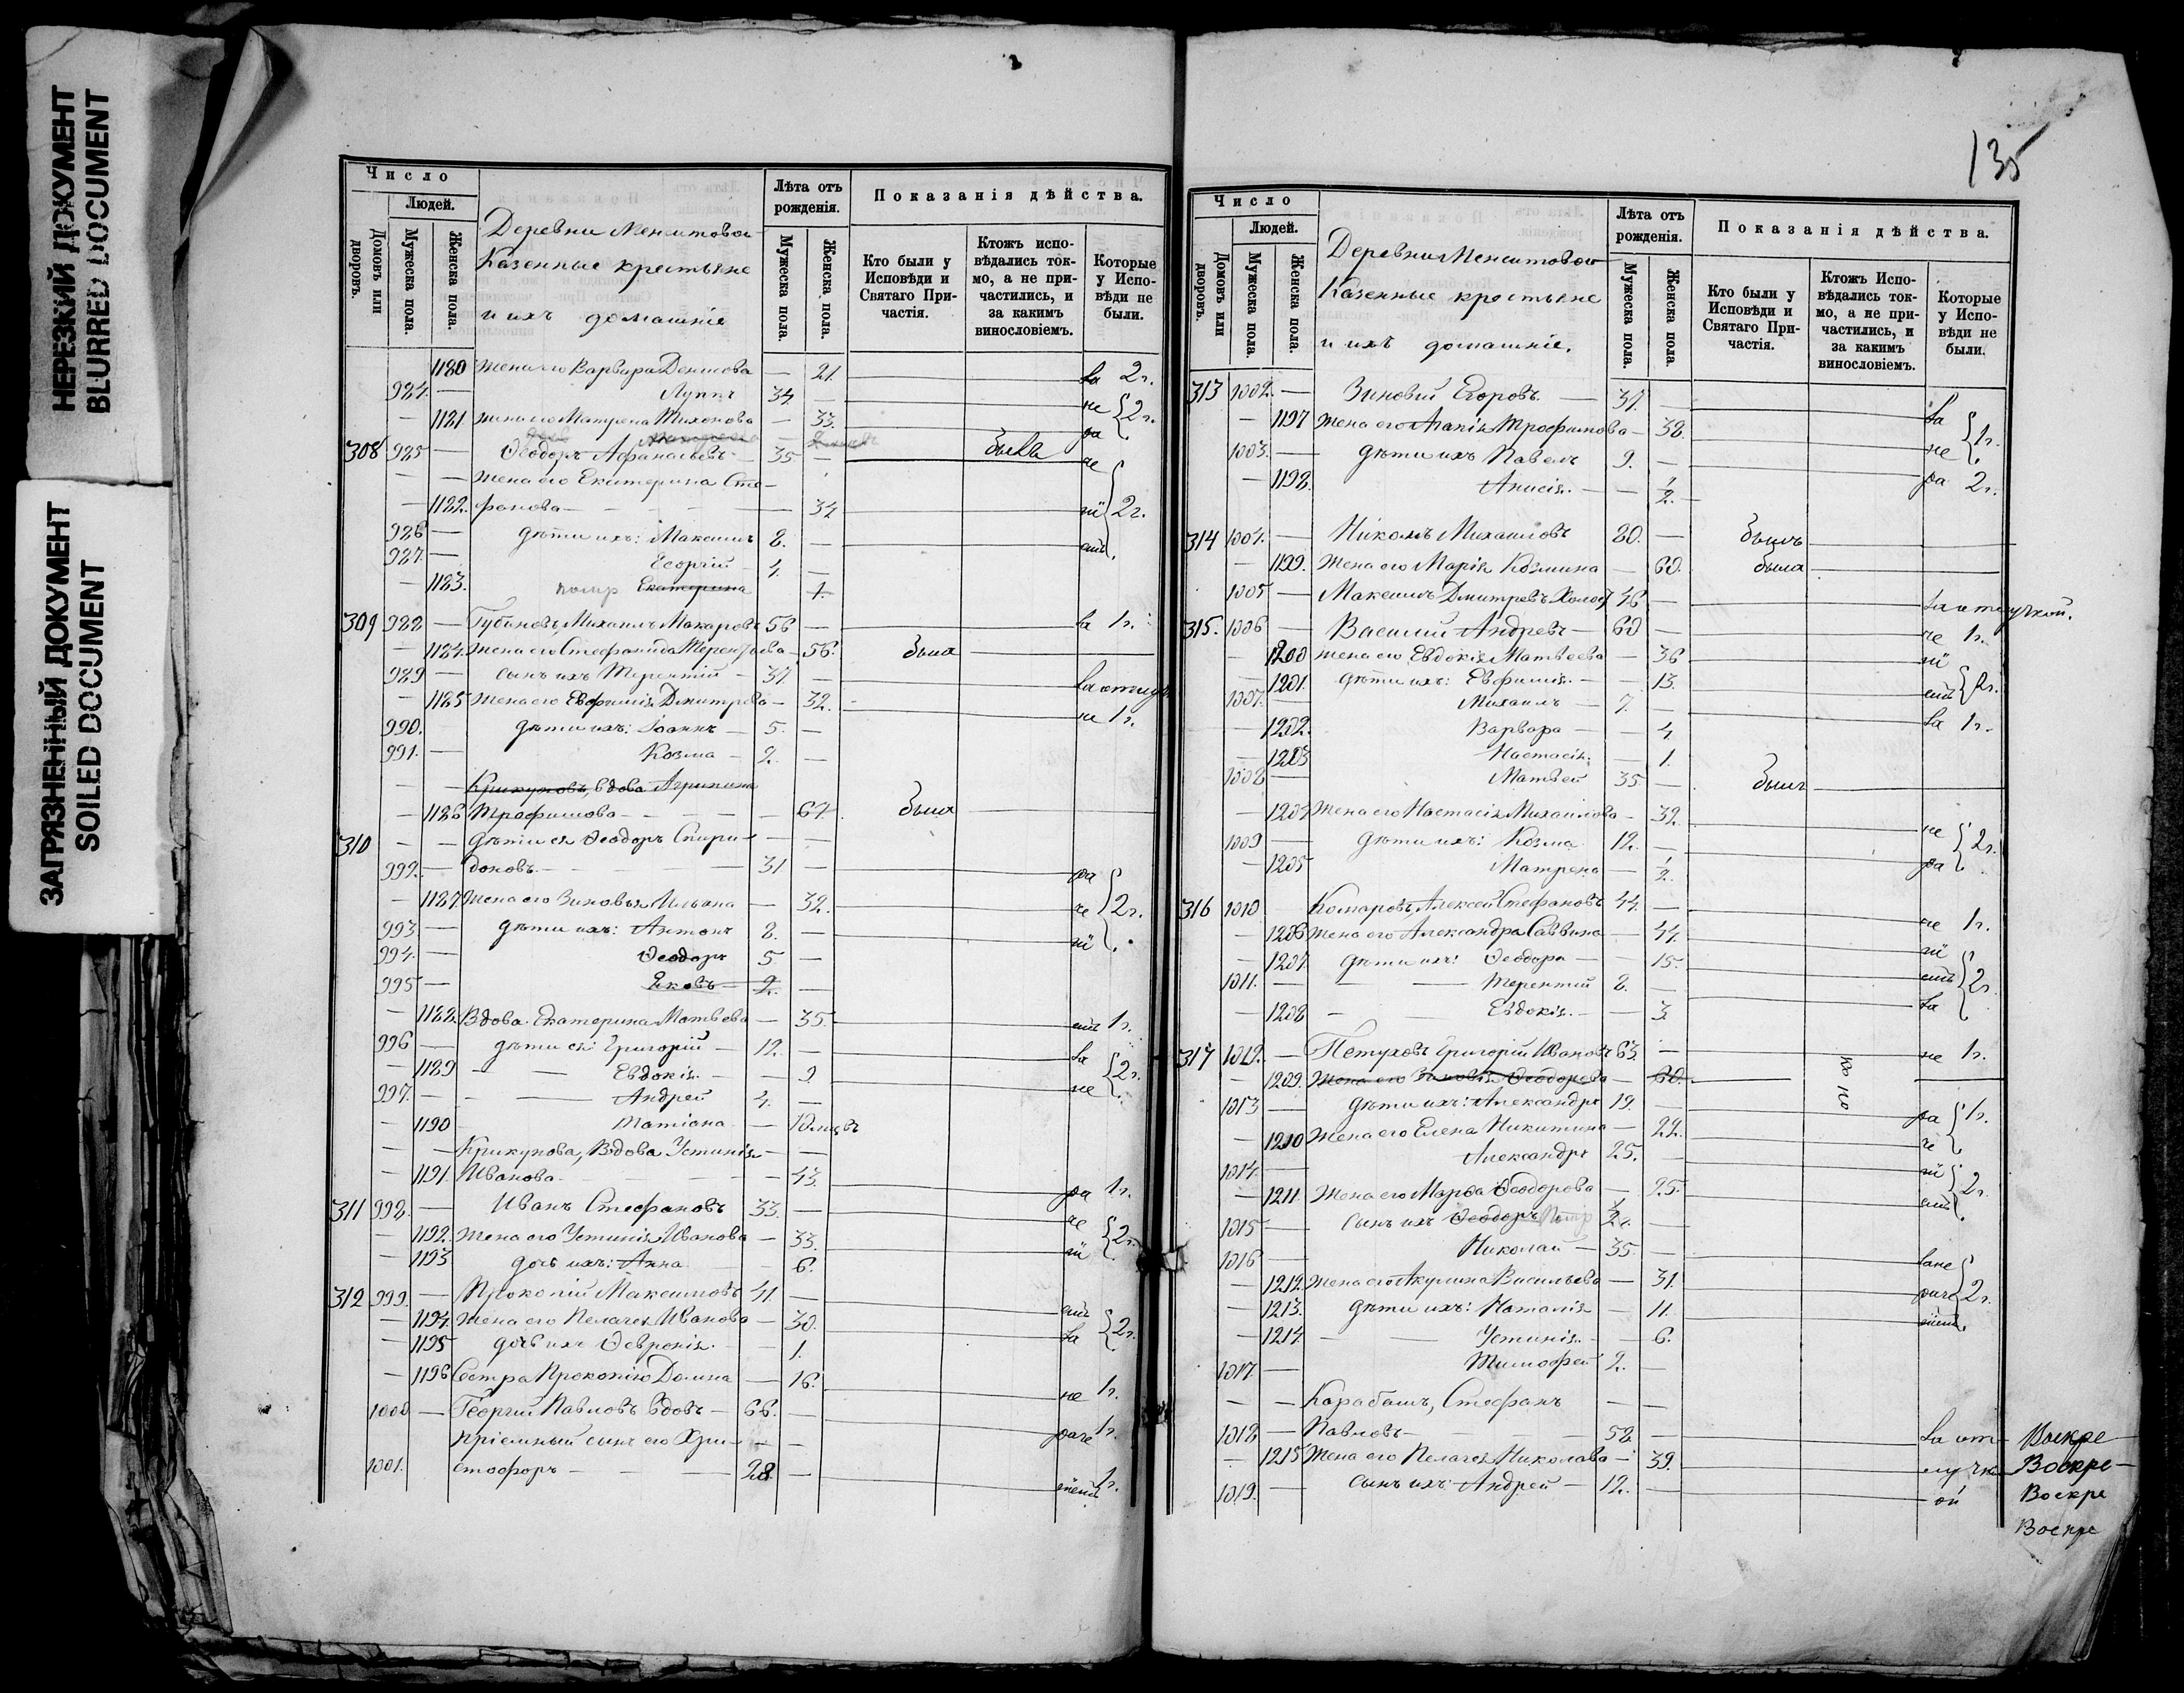 НЕРЕЗКИЙ ДОКУМЕНТ
BLURRED DOCUMENT
ЗАГРЯЗНЕННЫЙ ДОКУМЕНТ
SOILED DOCUMENT
Число
Людей.
Домовъ или дворовъ.
Мужеска пола.
Женска пола.
Деревни
Казенные крестьяне
и ихъ домашніе
Лѣта отъ рожденія.
Мужеска пола.
Женска пола.
Показанія дѣйства.
Кто были у Исповѣди и Святаго Причастія.
Ктожъ исповѣдались токмо, а не причастились, и за какимъ винословіемъ.
Которые у Исповѣди не были.
1180 Жена его Варвара Денисова — 21. ла 2г.
984. — Луппъ 34 — не
— 1181 жена его Матрена Тихонова — 33. ра 2г.
308 985 — Ѳеодоръ Афанасьевъ 35 — не
— — Жена его Екатерина Сте-
— 1182. фанова — 34 ній 2г.
986 — дѣти ихъ: Максимъ 8. —
987. — Георгій 4. —
— 1183. помр Екатерина 1.
309 988 — Губановъ, Михаилъ Макаровъ 56 — ла 1г.
— 1184. Жена его Стефанида Терентьева — 56. была
989 — сынъ ихъ Терентій — 37 —
— 1185 Жена его Евфимія Дмитрева — 32. не 1г.
990. дѣти ихъ: Іоаннъ — 5. —
991. — Козма — 2. —
— — Крикуновъ, вдова Агрипина
— 1186 Трофимова — 67. была
310 — — дѣти ея Ѳеодоръ Спири-
992. — доновъ. — 31 — ра
— 1187. Жена его Зиновья Ильина — 32. не 2г.
993 — дѣти ихъ: Антонъ 8. — ній
994. — Ѳеодоръ 5 —
995 — Яковъ 2. —
— 1188. Вдова Екатерина Матвѣева — 35. 1г.
996 — дѣти ея: Григорій — 12. — ла
— 1189 — Евдокія — 9 2г.
997. — Андрей 4. — не
— 1190 Татіана — 10 мцовъ
— — Крикунова, Вдова Устинія — —
— 1191. Иванова — 43. ра 1г.
311 998. — Иванъ Стефановъ 33. — не
— 1192. Жена его Устинія Иванова — 33. ній 2г.
— 1193 дочь ихъ: Анна 6.
312 999. — Прокопій Максимовъ 41. —
— 1194. Жена его Пелагея Иванова — 30. ла 2г.
— 1195 дочь ихъ Февронія — 1.
— 1196 Сестра Прокопію Домна — 16. не 1г.
1000 — Георгій Павловъ вдовъ — 66. — 1г.
пріемный сынъ его Хри- — —
1001. стофоръ — 28. — 1г.
135
Число
Людей.
Домовъ или дворовъ.
Мужеска пола.
Женска пола.
Деревни
Казенные крестьяне
и ихъ домашніе.
Лѣта отъ рожденія.
Мужеска пола.
Женска пола.
Показанія дѣйства.
Кто были у Исповѣди и Святаго Причастія.
Ктожъ Исповѣдались токмо, а не причастились, и за какимъ винословіемъ.
Которые у Исповѣди не были.
313 1002. — Зиновій Егоровъ — 37. — ла
— 1197 Жена его Агапія Трофимова — 38. 1г.
1003. — дѣти ихъ Павелъ 9. — не
— 1198. Анисія. — 1/2. ра 2г.
314 1004. — Михаиловъ 80. — былъ
— 1199. Жена его Марія Козмина — 60. была
1005 — Максимъ Дмитревъ Холос 46 — за отлучкой.
315. 1006 — Василій Андревъ — 60 — не 1г.
— 1200 Жена его Евдокія Матвѣева — 36 ній
— 1201. дѣти ихъ: Евфимія. — 13. 2г.
1007. — Михаилъ — 7. — ла 1г.
— 1202. Варвара — 4.
— 1203 Настасія. — 1.
1008 — Матвей 35 — былъ
— 1204 Жена его Настасія Михаилова — 32.
1009 — дѣти ихъ: Козма 12. — не 2г.
— 1205 Матрена — 1/2. ра
316 1010 Комаровъ, Алексей Стефановъ 44. — не 1г.
— 1206 Жена его Александра Саввина — 44. ній
— 1207. дѣти ихъ: Ѳеодора — 15. 2г.
1011. — Терентій 8. — ла
— 1208 — Евдокія. — 3.
317 1012. — Петуховъ, Григорій Ивановъ 63. — не 1г.
— 1209. Жена его Зиновія Ѳеодорова — 60.
1013 — дѣти ихъ: Александръ 19. — ра 1г.
— 1210 Жена его Елена Никитина — 22. не
1014. — Александръ 25. — ній 2г.
— 1211. Жена его Марѳа Ѳеодорова — 25.
1015 — сынъ ихъ Ѳеодоръ помр 1/2 г. —
1016 — Николай — 35. —
— 1212. Жена его Акулина Васильева — 31. 2г.
— 1213. дѣти ихъ: Наталія — 11.
— 1214. — Устинія. — 6.
1017. — Тимоѳей 2. —
— — Карабашъ, Стефанъ — —
1018. — Павловъ — 58. — за от- Воскре
— 1215 Жена его Пелагея Николава — 39. лучк Воскре
1019. — сынъ ихъ Андрей — 12. — ой Воскре
Воскре